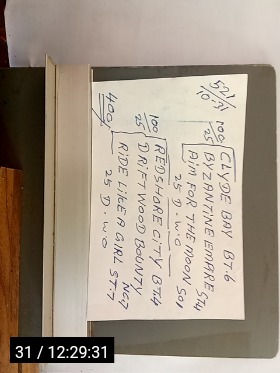 100 CLYDE BAY BT.6
25 BYZANTINE EMARE ST4
AIM FOR THE MOON S01
25 D. W.O
100 REDSHORE CITY BT4
25 DRIFTWOOD BOUNTY
RIDE LIKE A GIRL ST.7
25 D. W.O
NC7
400
31 / 12:29:31